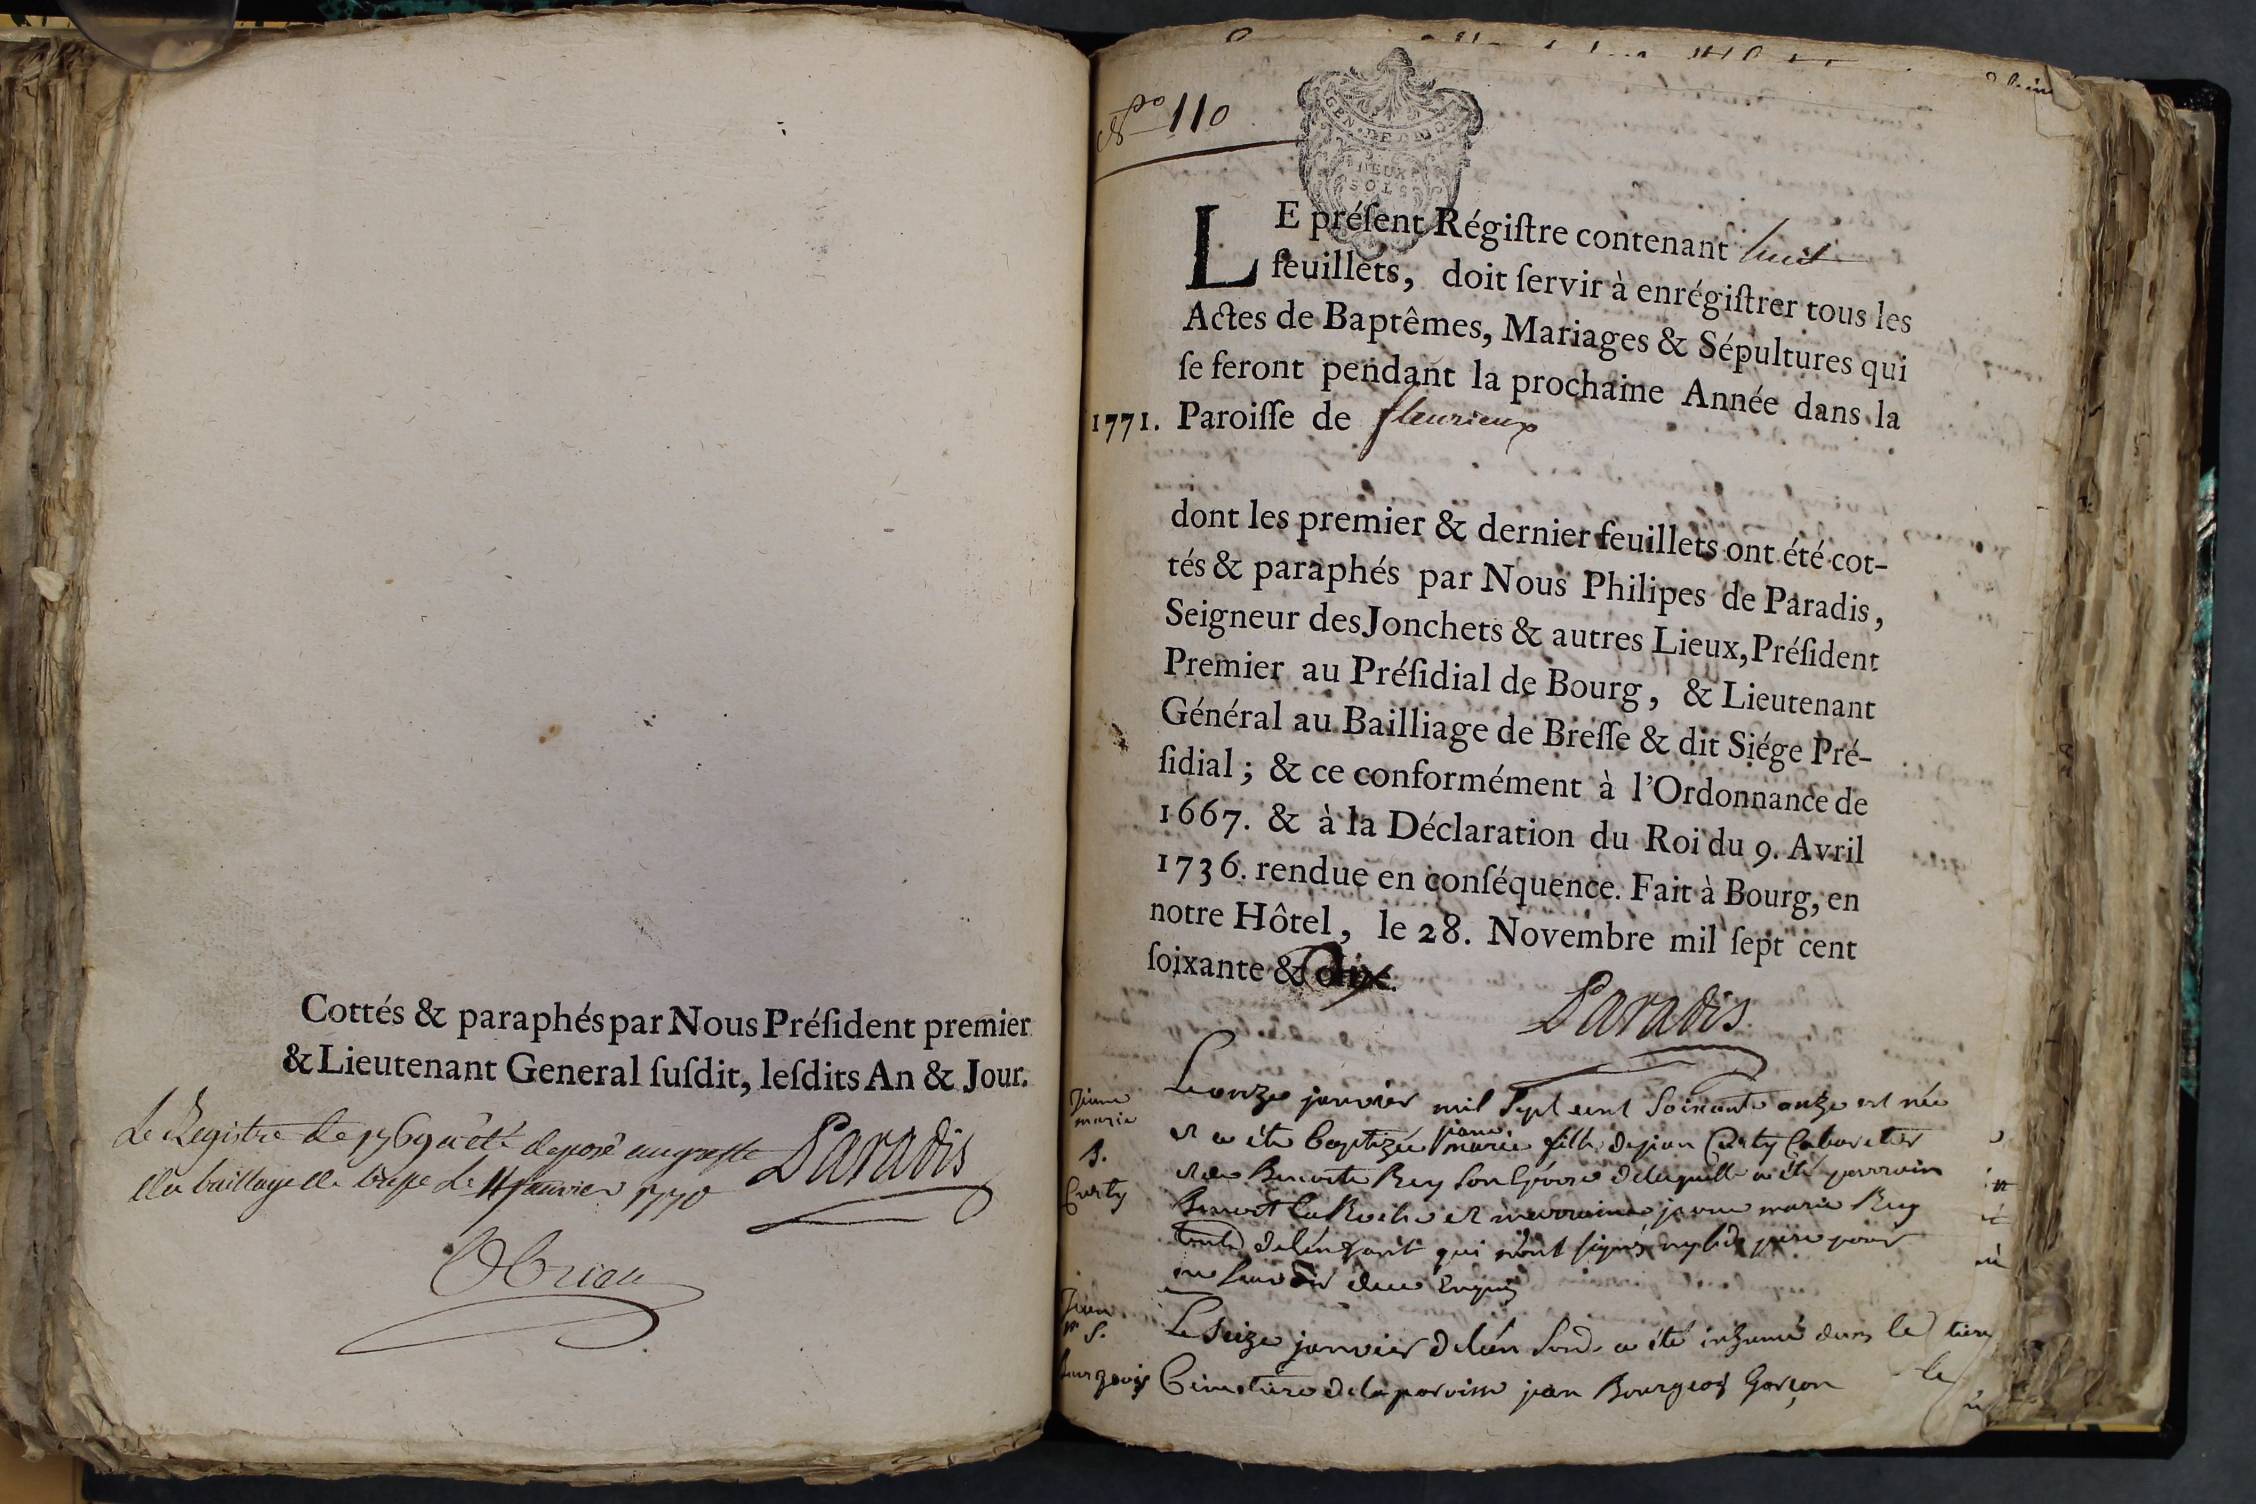 Cottés & paraphés par Nous Préſident premier
& Lieutenant General ſuſdit, leſdits An & Jour.
Le Registre de 1769 a été deposé au greffe
du bailliage de le 11 janvier 1770
Paradis
N° 110
GEN DE DIJON
DEUX
SOLS
LE préſent Régiſtre contenant huit
feuillets, doit ſervir à enrégiſtrer tous les
Actes de Baptêmes, Mariages & Sépultures qui
ſe feront pendant la prochaine Année dans la
1771. Paroiſſe de fleurieux
dont les premier & dernier feuillets ont été cot-
tés & paraphés par Nous Philipes de Paradis,
Seigneur des Jonchets & autres Lieux, Préſident
Premier au Préſidial de Bourg, & Lieutenant
Général au Bailliage de Breſſe & dit Siége Pré-
ſidial; & ce conformément à l'Ordonnance de
1667. & à la Déclaration du Roi du 9. Avril
1736. rendue en conſéquence. Fait à Bourg, en
notre Hôtel, le 28. Novembre mil ſept cent
ſoixante & dix.
Paradis
marie
B.
Curty
Le onze janvier mil sept cent soixante onze est née
et a été baptizée jeanne marie fille de jean Curty Cabaretier
et de Benoite Rey son épouse de laquelle a été parrain
Benoit la Roche et marraine jeanne marie Rey
tante de l'enfant qui n'ont signé ny le père pour
ne savoir de ce enquis
S.
Bourgeois
Le seize janvier de l'an Susd. a été inhumé dans le
Cimetiere de la paroisse jean Bourgeois garçon